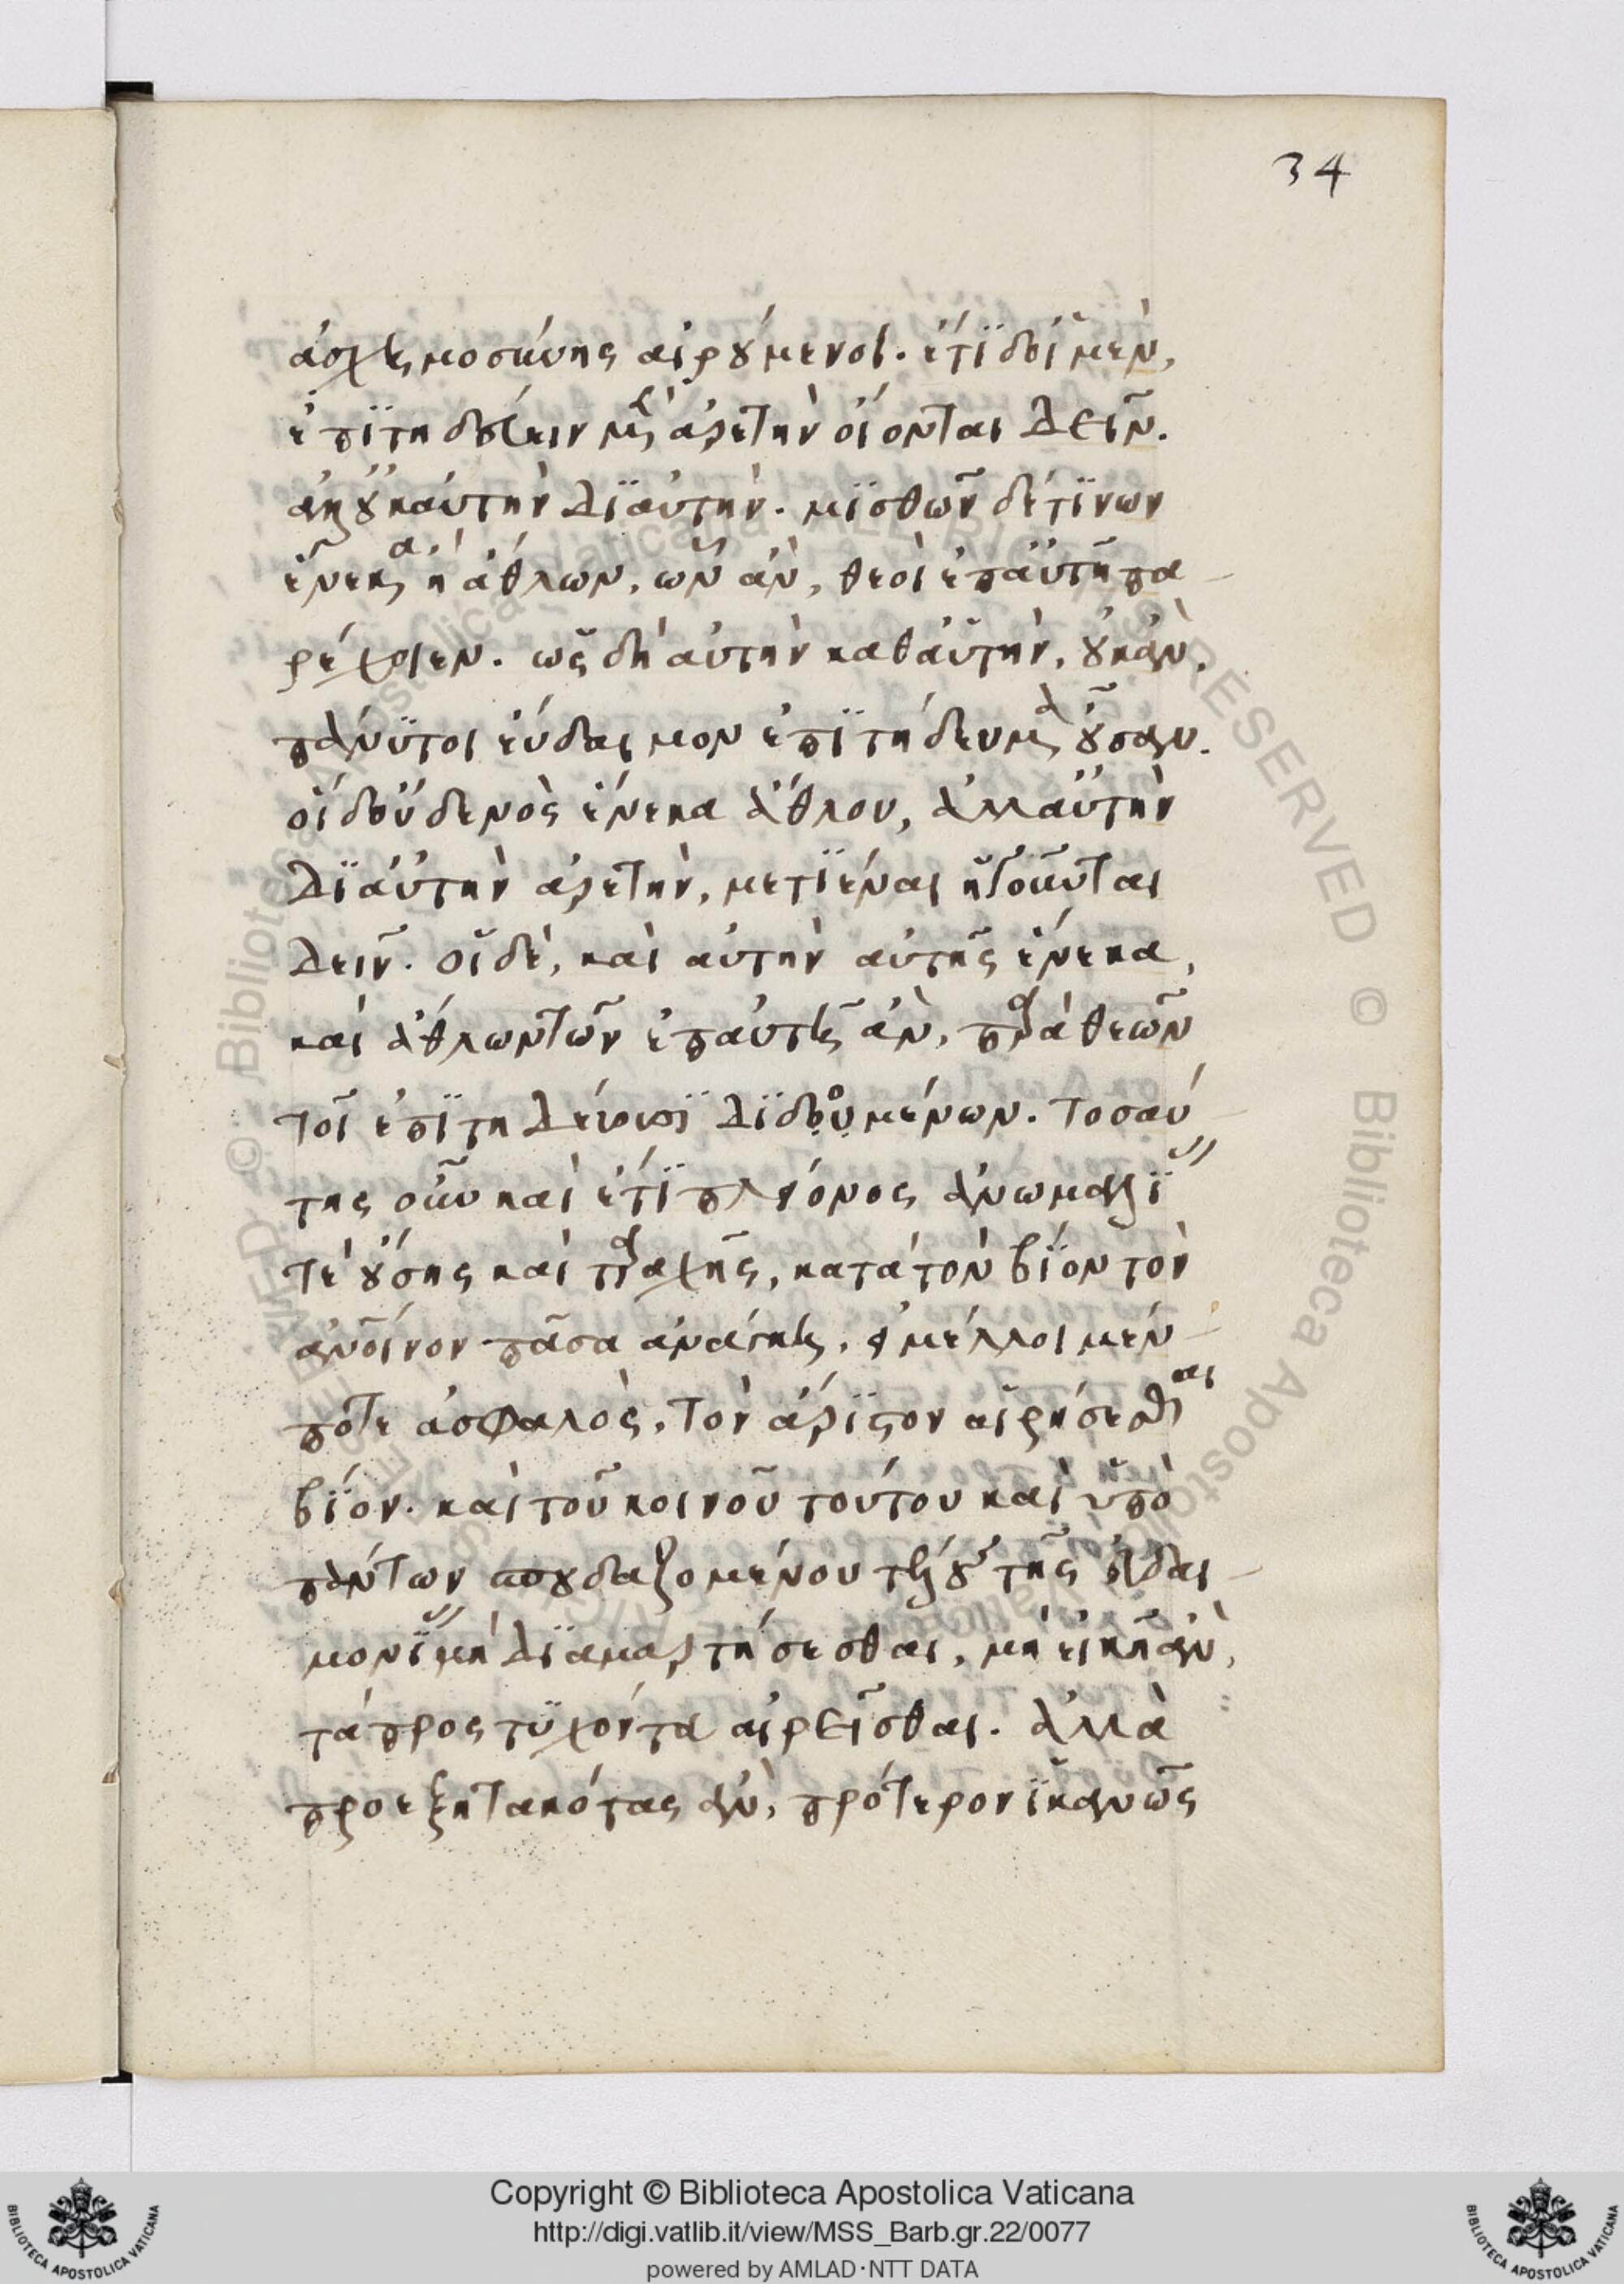 34
ἀσχημοσύνης αἱρούμενοι. ἔτι δ' οἱ μὲν,
ἐπιτηδεύειν μὲν ἀρετὴν οἴονται δεῖν.
ἀλλ' οὐκ αὐτὴν δι' αὑτὴν. μισθῶν δέ τινων
ἕνεκα ἢ ἄθλων, ὧν ἂν, θεοὶ ἐπ' αὐτῇ πα
ρέχοιεν. ὡς δὴ αὐτὴν καθ' αὑτὴν, οὐκ ἂν,
πάνυ τοι εὔδαιμον ἐπιτήδευμα οὖσαν.
οἱ δ' οὐδενὸς ἕνεκα ἄθλου, ἀλλ' αὐτὴν
δι' αὑτὴν ἀρετὴν, μετιέναι ἡγοῦνται
δεῖν. οἱ δὲ, καὶ αὐτὴν αὑτῆς ἕνεκα,
καὶ ἄθλων τῶν ἐπ' αὐτῇ ἂν, παρὰ θεῶν
τοῖς ἐπιτηδεύουσι διδομένων. τοσαύ
της οὖν καὶ ἔτι πλείονος ἀνωμαλίας
τὲ οὔσης καὶ ταραχῆς, κατὰ τὸν βίον τὸν
ἀνθρώπινον πᾶσα ἀνάγκη, εἰ μέλλοιμέν
ποτε ἀσφαλῶς, τὸν ἄριστον αἱρήσεσθαι
βίον. καὶ τοῦ κοινοῦ τούτου καὶ ὑπὸ
πάντων σπουδαζομένου τέλους τῆς εὐδαι
μονίας μὴ διαμαρτήσεσθαι, μὴ εἰκῆ ἂν,
τὰ προστυχόντα αἱρεῖσθαι. ἀλλὰ
προεξητακότας ἂν, πρότερον ἱκανῶς
Copyright © Biblioteca Apostolica Vaticana
http://digi.vatlib.it/view/MSS_Barb.gr.22/0077
powered by AMLAD·NTT DATA